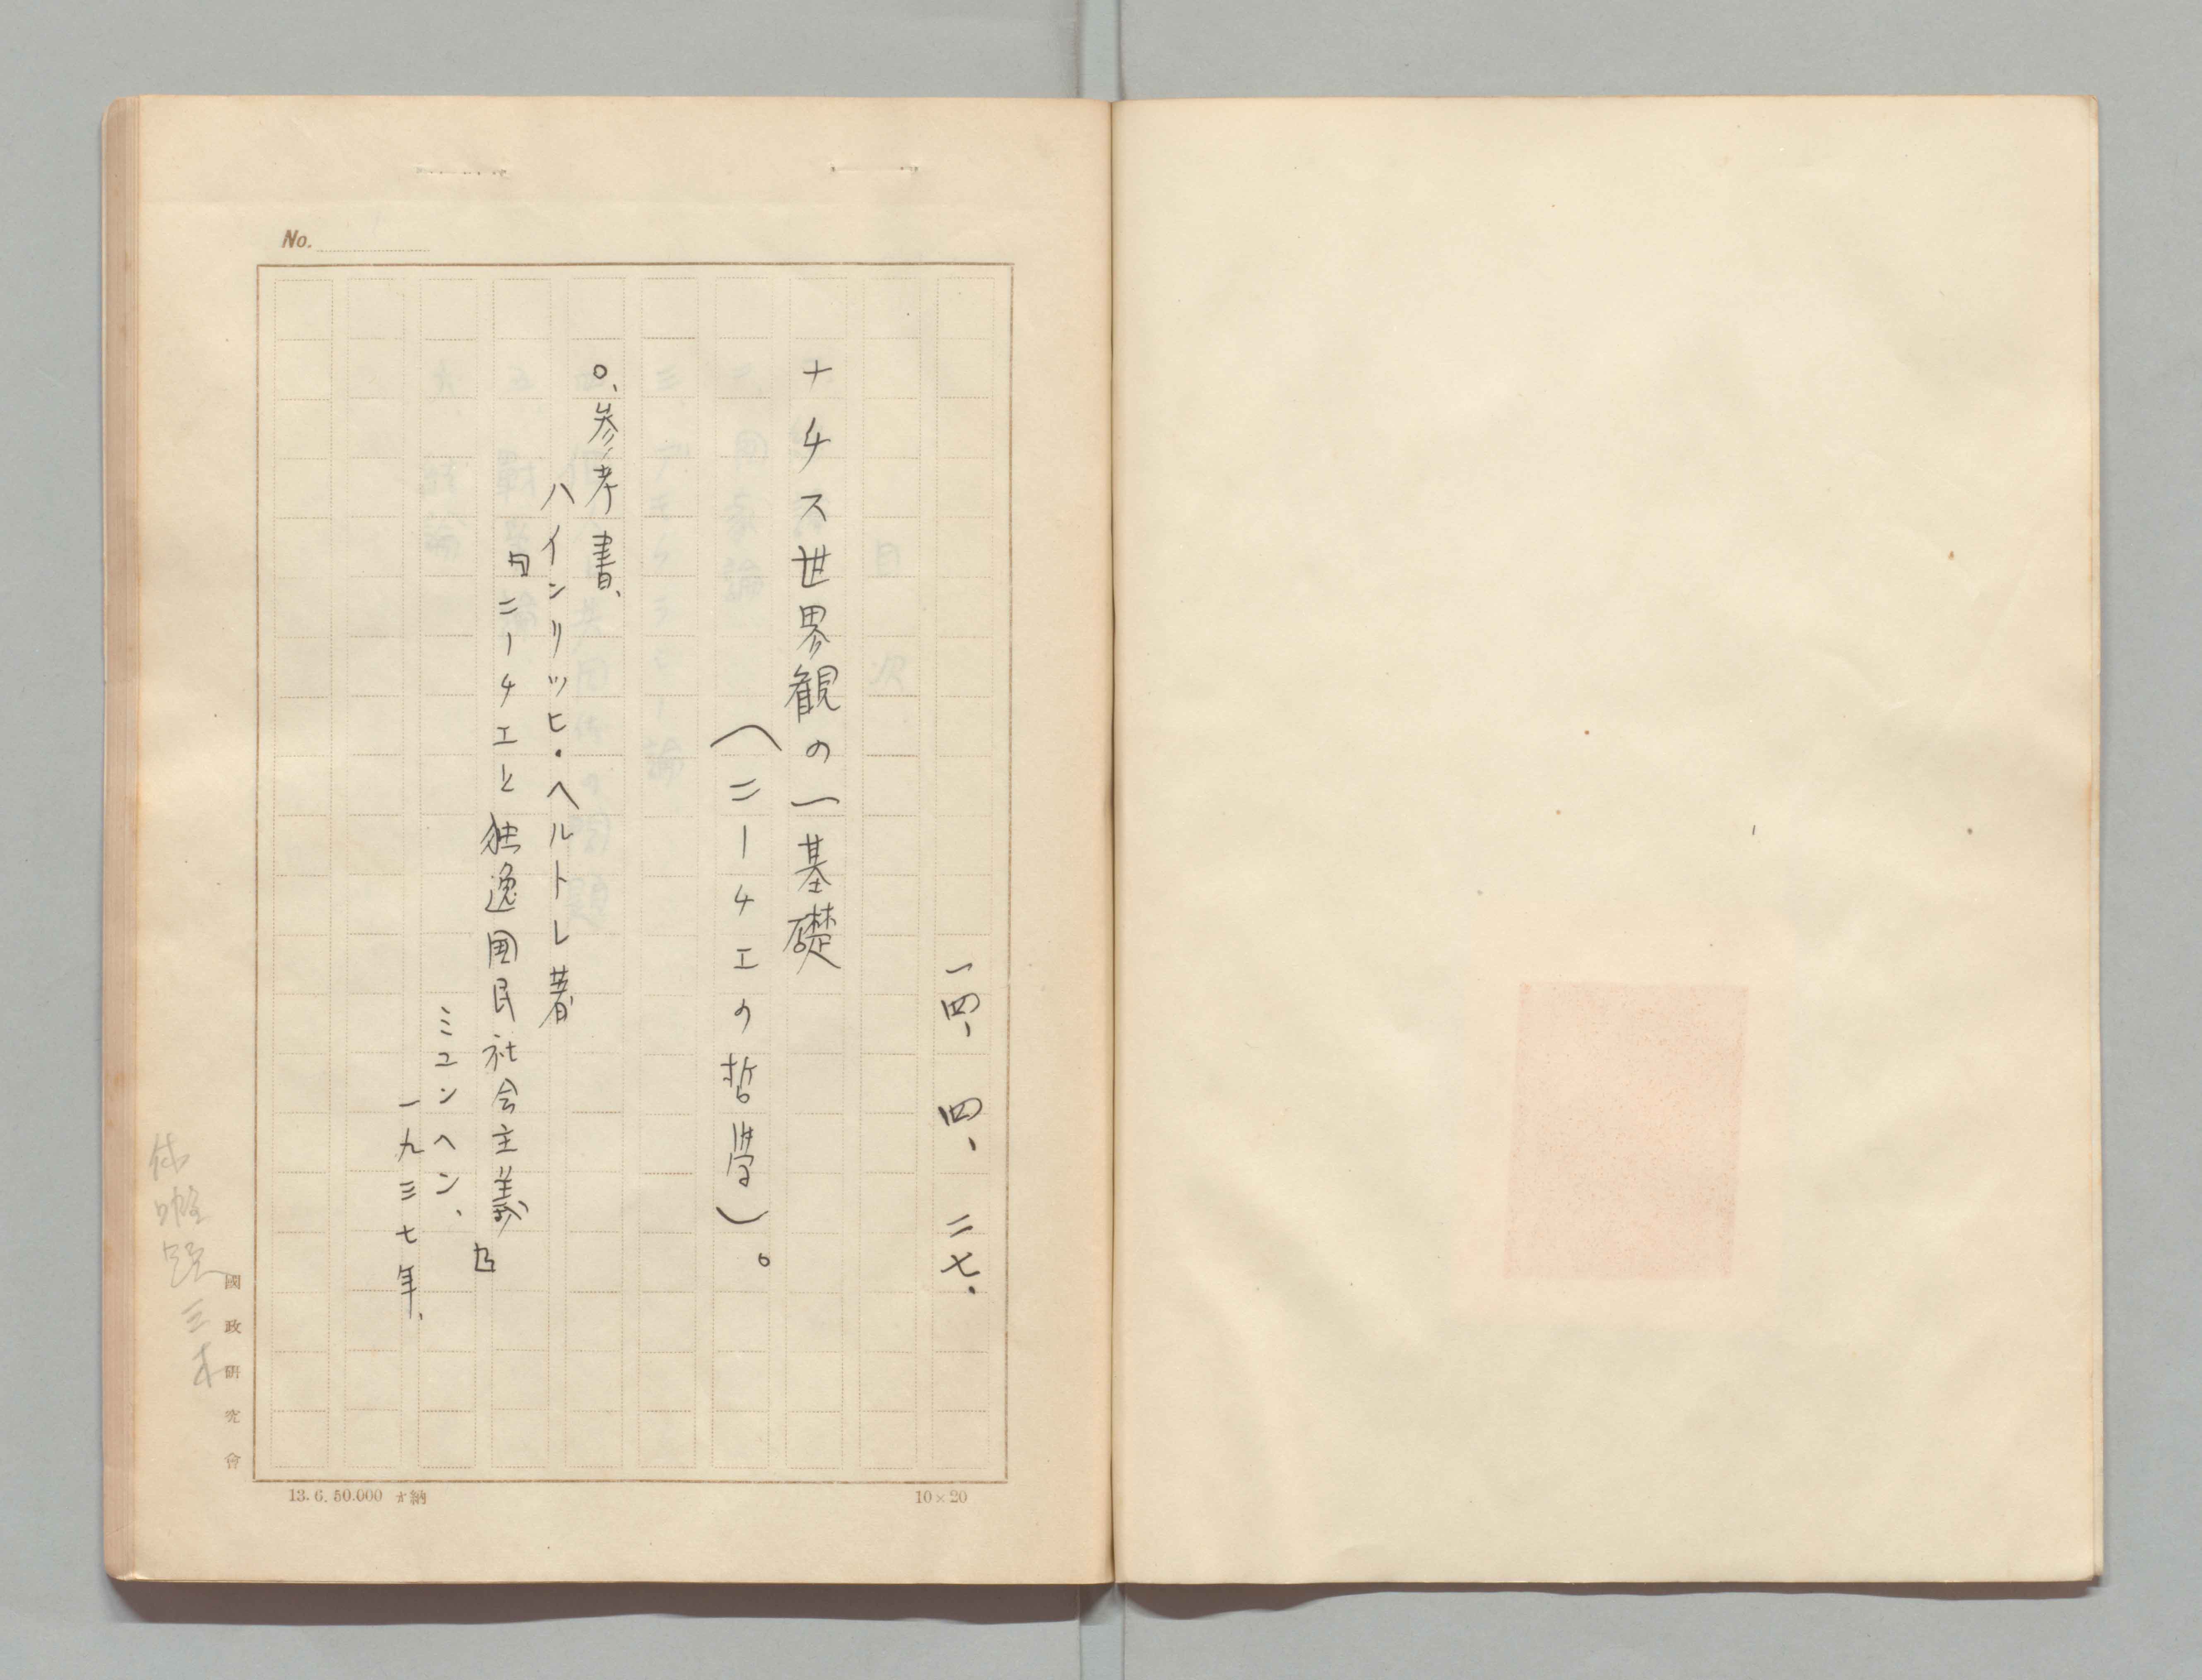 一四、四、二七.
ナチス世界観の一基礎
(ニーチエの哲學)。
○、参考書、
ハインリツヒ・ヘルトレ著
『ニーチエと独逸国民社会主義』
ミユンヘン、
一九三七年、
No.
國政研究會
13.6.50.000 納
10×20